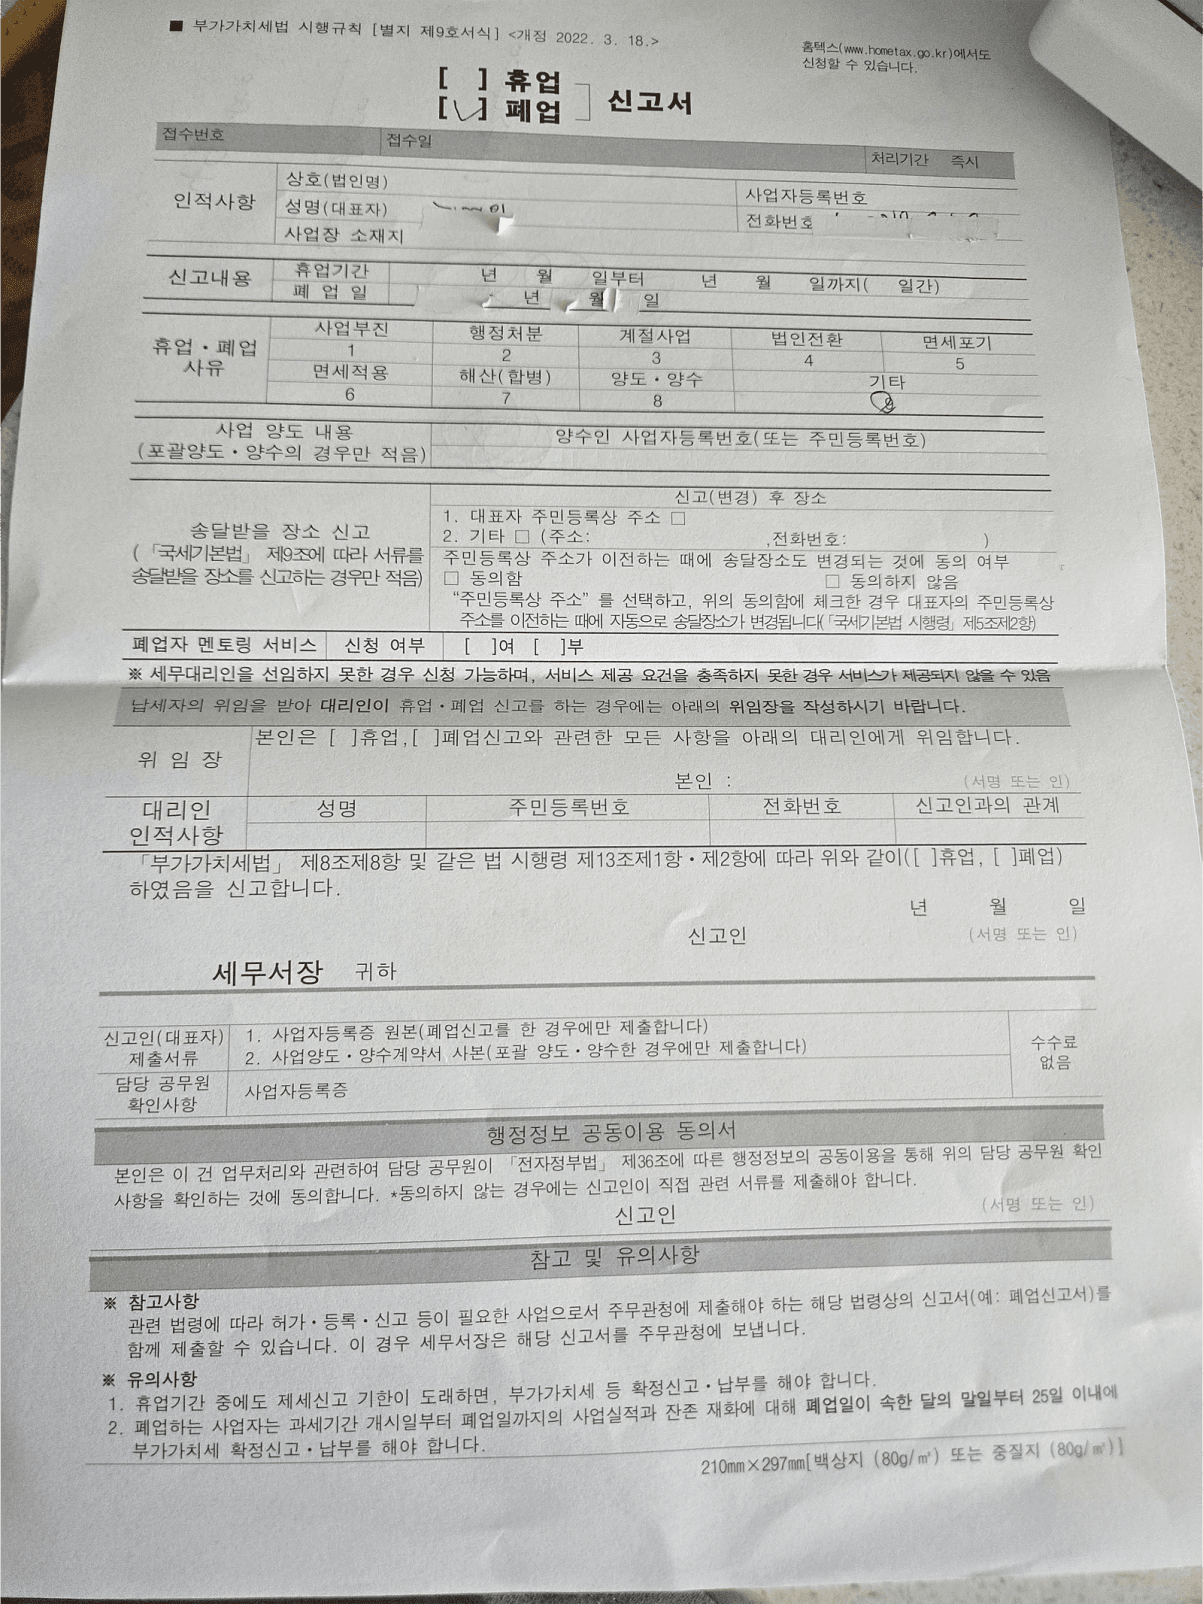 ■ 부가가치세법 시행규칙 [별지 제9호서식] <개정 2022. 3. 18.>
홈텍스(www.hometax.go.kr)에서도
신청할 수 있습니다.
[ ] 휴업
[✓] 폐업
신고서
접수번호 접수일 처리기간 즉시
인적사항
상호(법인명) 사업자등록번호
성명(대표자) 전화번호
사업장 소재지
신고내용
휴업기간 년 월 일부터 년 월 일까지( 일간)
폐 업 일 년 월 일
휴업·폐업
사유
사업부진 행정처분 계절사업 법인전환 면세포기
1 2 3 4 5
면세적용 해산(합병) 양도·양수 기타
6 7 8 9
사업 양도 내용
(포괄양도·양수의 경우만 적음)
양수인 사업자등록번호(또는 주민등록번호)
송달받을 장소 신고
(「국세기본법」 제9조에 따라 서류를
송달받을 장소를 신고하는 경우만 적음)
신고(변경) 후 장소
1. 대표자 주민등록상 주소 □
2. 기타 □ (주소: ,전화번호: )
주민등록상 주소가 이전하는 때에 송달장소도 변경되는 것에 동의 여부
□ 동의함 □ 동의하지 않음
“주민등록상 주소” 를 선택하고, 위의 동의함에 체크한 경우 대표자의 주민등록상
주소를 이전하는 때에 자동으로 송달장소가 변경됩니다(「국세기본법 시행령」 제5조제2항)
폐업자 멘토링 서비스 신청 여부 [ ]여 [ ]부
※ 세무대리인을 선임하지 못한 경우 신청 가능하며, 서비스 제공 요건을 충족하지 못한 경우 서비스가 제공되지 않을 수 있음
납세자의 위임을 받아 대리인이 휴업·폐업 신고를 하는 경우에는 아래의 위임장을 작성하시기 바랍니다.
위 임 장
본인은 [ ]휴업,[ ]폐업신고와 관련한 모든 사항을 아래의 대리인에게 위임합니다.
본인 : (서명 또는 인)
대리인
인적사항
성명 주민등록번호 전화번호 신고인과의 관계
「부가가치세법」 제8조제8항 및 같은 법 시행령 제13조제1항·제2항에 따라 위와 같이([ ]휴업, [ ]폐업)
하였음을 신고합니다.
년 월 일
신고인 (서명 또는 인)
세무서장 귀하
신고인(대표자)
제출서류
1. 사업자등록증 원본(폐업신고를 한 경우에만 제출합니다)
2. 사업양도·양수계약서 사본(포괄 양도·양수한 경우에만 제출합니다)
수수료
없음
담당 공무원
확인사항
사업자등록증
행정정보 공동이용 동의서
본인은 이 건 업무처리와 관련하여 담당 공무원이 「전자정부법」 제36조에 따른 행정정보의 공동이용을 통해 위의 담당 공무원 확인
사항을 확인하는 것에 동의합니다. *동의하지 않는 경우에는 신고인이 직접 관련 서류를 제출해야 합니다.
신고인 (서명 또는 인)
참고 및 유의사항
※ 참고사항
관련 법령에 따라 허가·등록·신고 등이 필요한 사업으로서 주무관청에 제출해야 하는 해당 법령상의 신고서(예: 폐업신고서)를
함께 제출할 수 있습니다. 이 경우 세무서장은 해당 신고서를 주무관청에 보냅니다.
※ 유의사항
1. 휴업기간 중에도 제세신고 기한이 도래하면, 부가가치세 등 확정신고·납부를 해야 합니다.
2. 폐업하는 사업자는 과세기간 개시일부터 폐업일까지의 사업실적과 잔존 재화에 대해 폐업일이 속한 달의 말일부터 25일 이내에
부가가치세 확정신고·납부를 해야 합니다.
210mm×297mm[백상지 (80g/㎡) 또는 중질지 (80g/㎡)]